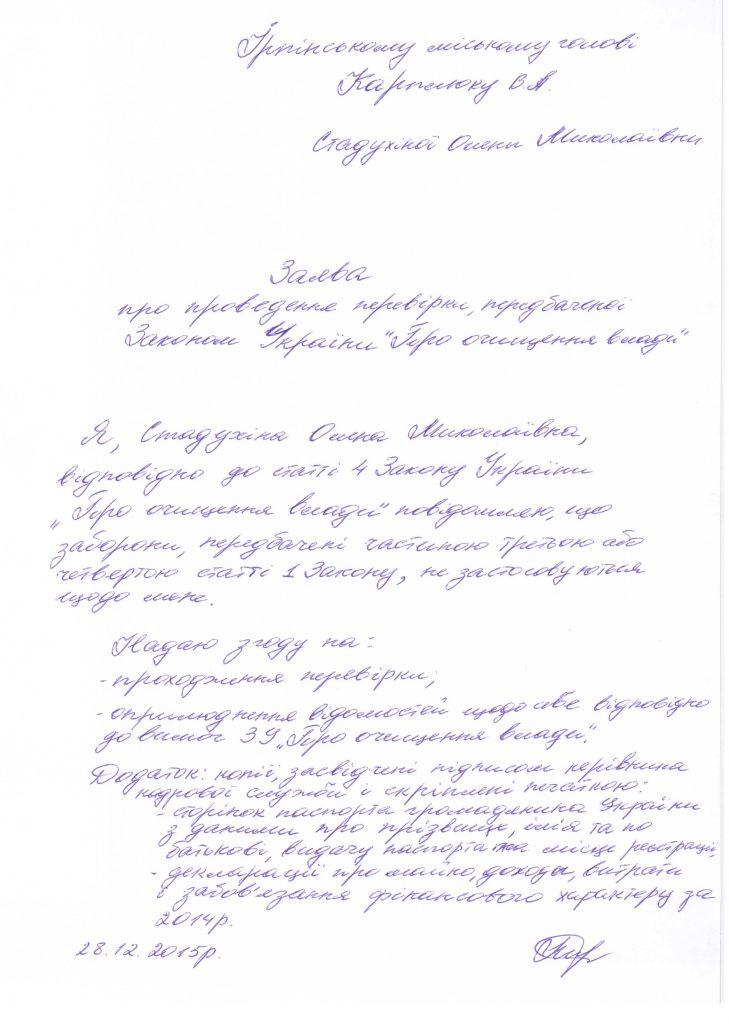 Ірпінському міському голові
Карплюку В.А.
Стадухіної Олени Миколаївни
Заява
про проведення перевірки, передбаченої
Законом України "Про очищення влади"
Я, Стадухіна Олена Миколаївна,
відповідно до статті 4 Закону України
„Про очищення влади" повідомляю, що
заборони, передбачені частиною третьою або
четвертою статті 1 Закону, не застосовуються
щодо мене.
Надаю згоду на:
- проходження перевірки;
- оприлюднення відомостей щодо себе відповідно
до вимог ЗУ „Про очищення влади".
Додаток: копії, засвідчені підписом керівника
кадрової служби і скріплені печаткою:
- сторінок паспорта громадянина України
з даними про прізвище, ім'я та по
батькові, видачу паспорта та місце реєстрації;
- декларації про майно, доходи, витрати
і забов'язання фінансового характеру за
2014р.
28.12.2015р.